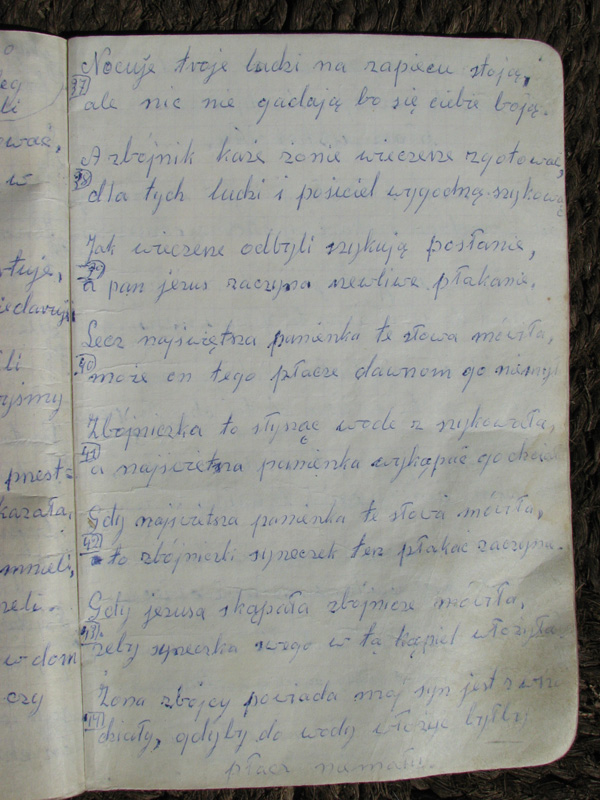 o
eg
li
ować,
w
stuje,
li
yśmy
przest=
karała,
mnieli,
w dom
czy
Nocuje twoje ludzi na zapiecu stoją,
37 ale nic nie gadają bo się ciebie boją.
A zbójnik każe żonie wieczerze zgotować,
38 dla tych ludzi i pościel wygodną szykować
Jak wieczerze odbyli szykują posłanie,
39 a pan jezus zaczyna rzewliwe płakanie.
Lecz najświętsza panienka te słowa mówiła,
40 może on tego płacze dawnom go nie myła
Zbójniczka to słysząc wode z szykowała,
41 a najświetsza panienka wykąpać go chcia
Gdy najświetsza panienka te słowa mówiła,
42 to zbójniczki syneczek tez płakać zaczyna.
Gdy jezusa skąpała zbójnice mówiła,
43 zeby syneczka swego w tą kąpiel włożyła
Żona zbójcy powiada mój syn jest
44 działy, gdyby do wody włożyć byłby
płacz niemały.